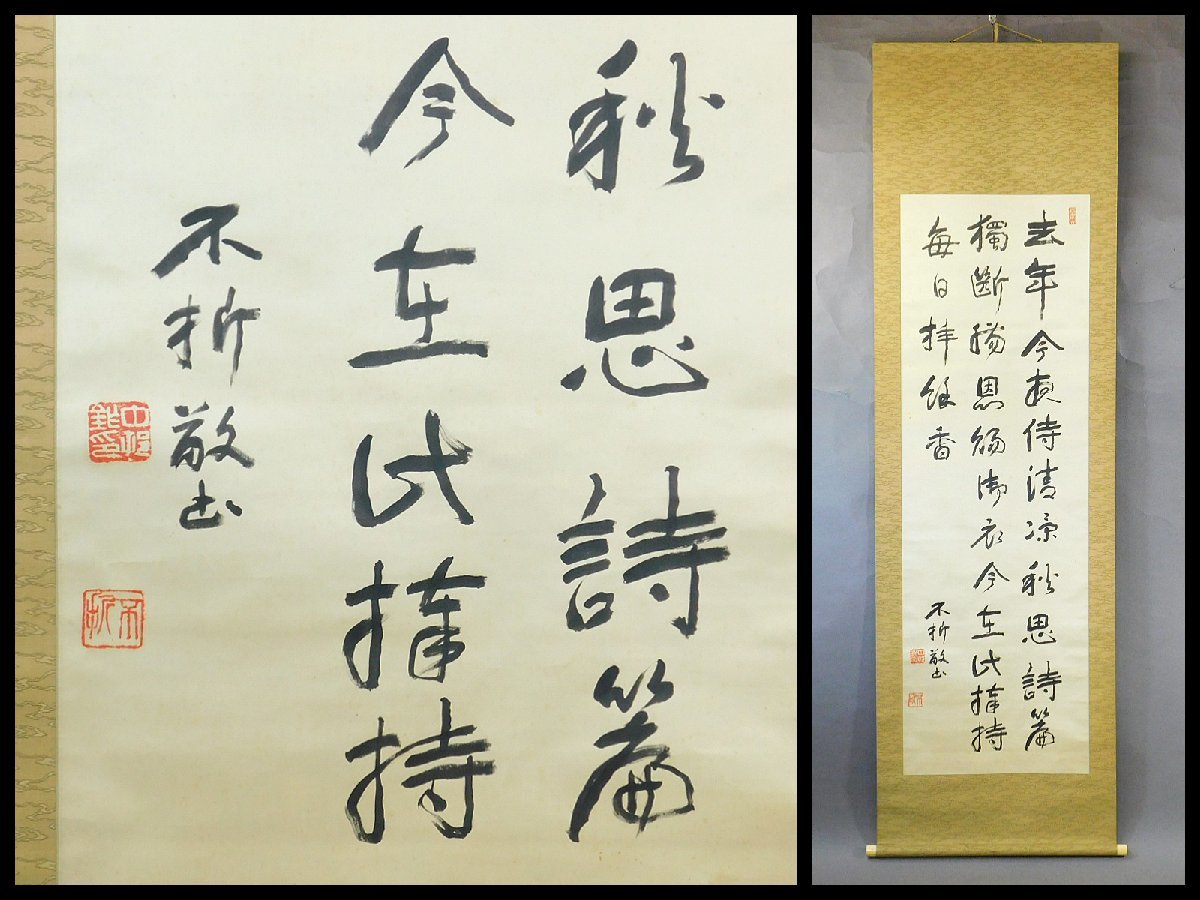 秋思詩篇
今在此捧持
不折敬書
中村鈼印
不折
去年今夜侍清涼秋思詩篇
獨斷腸恩賜御衣今在此捧持
每日拝餘香
不折敬書